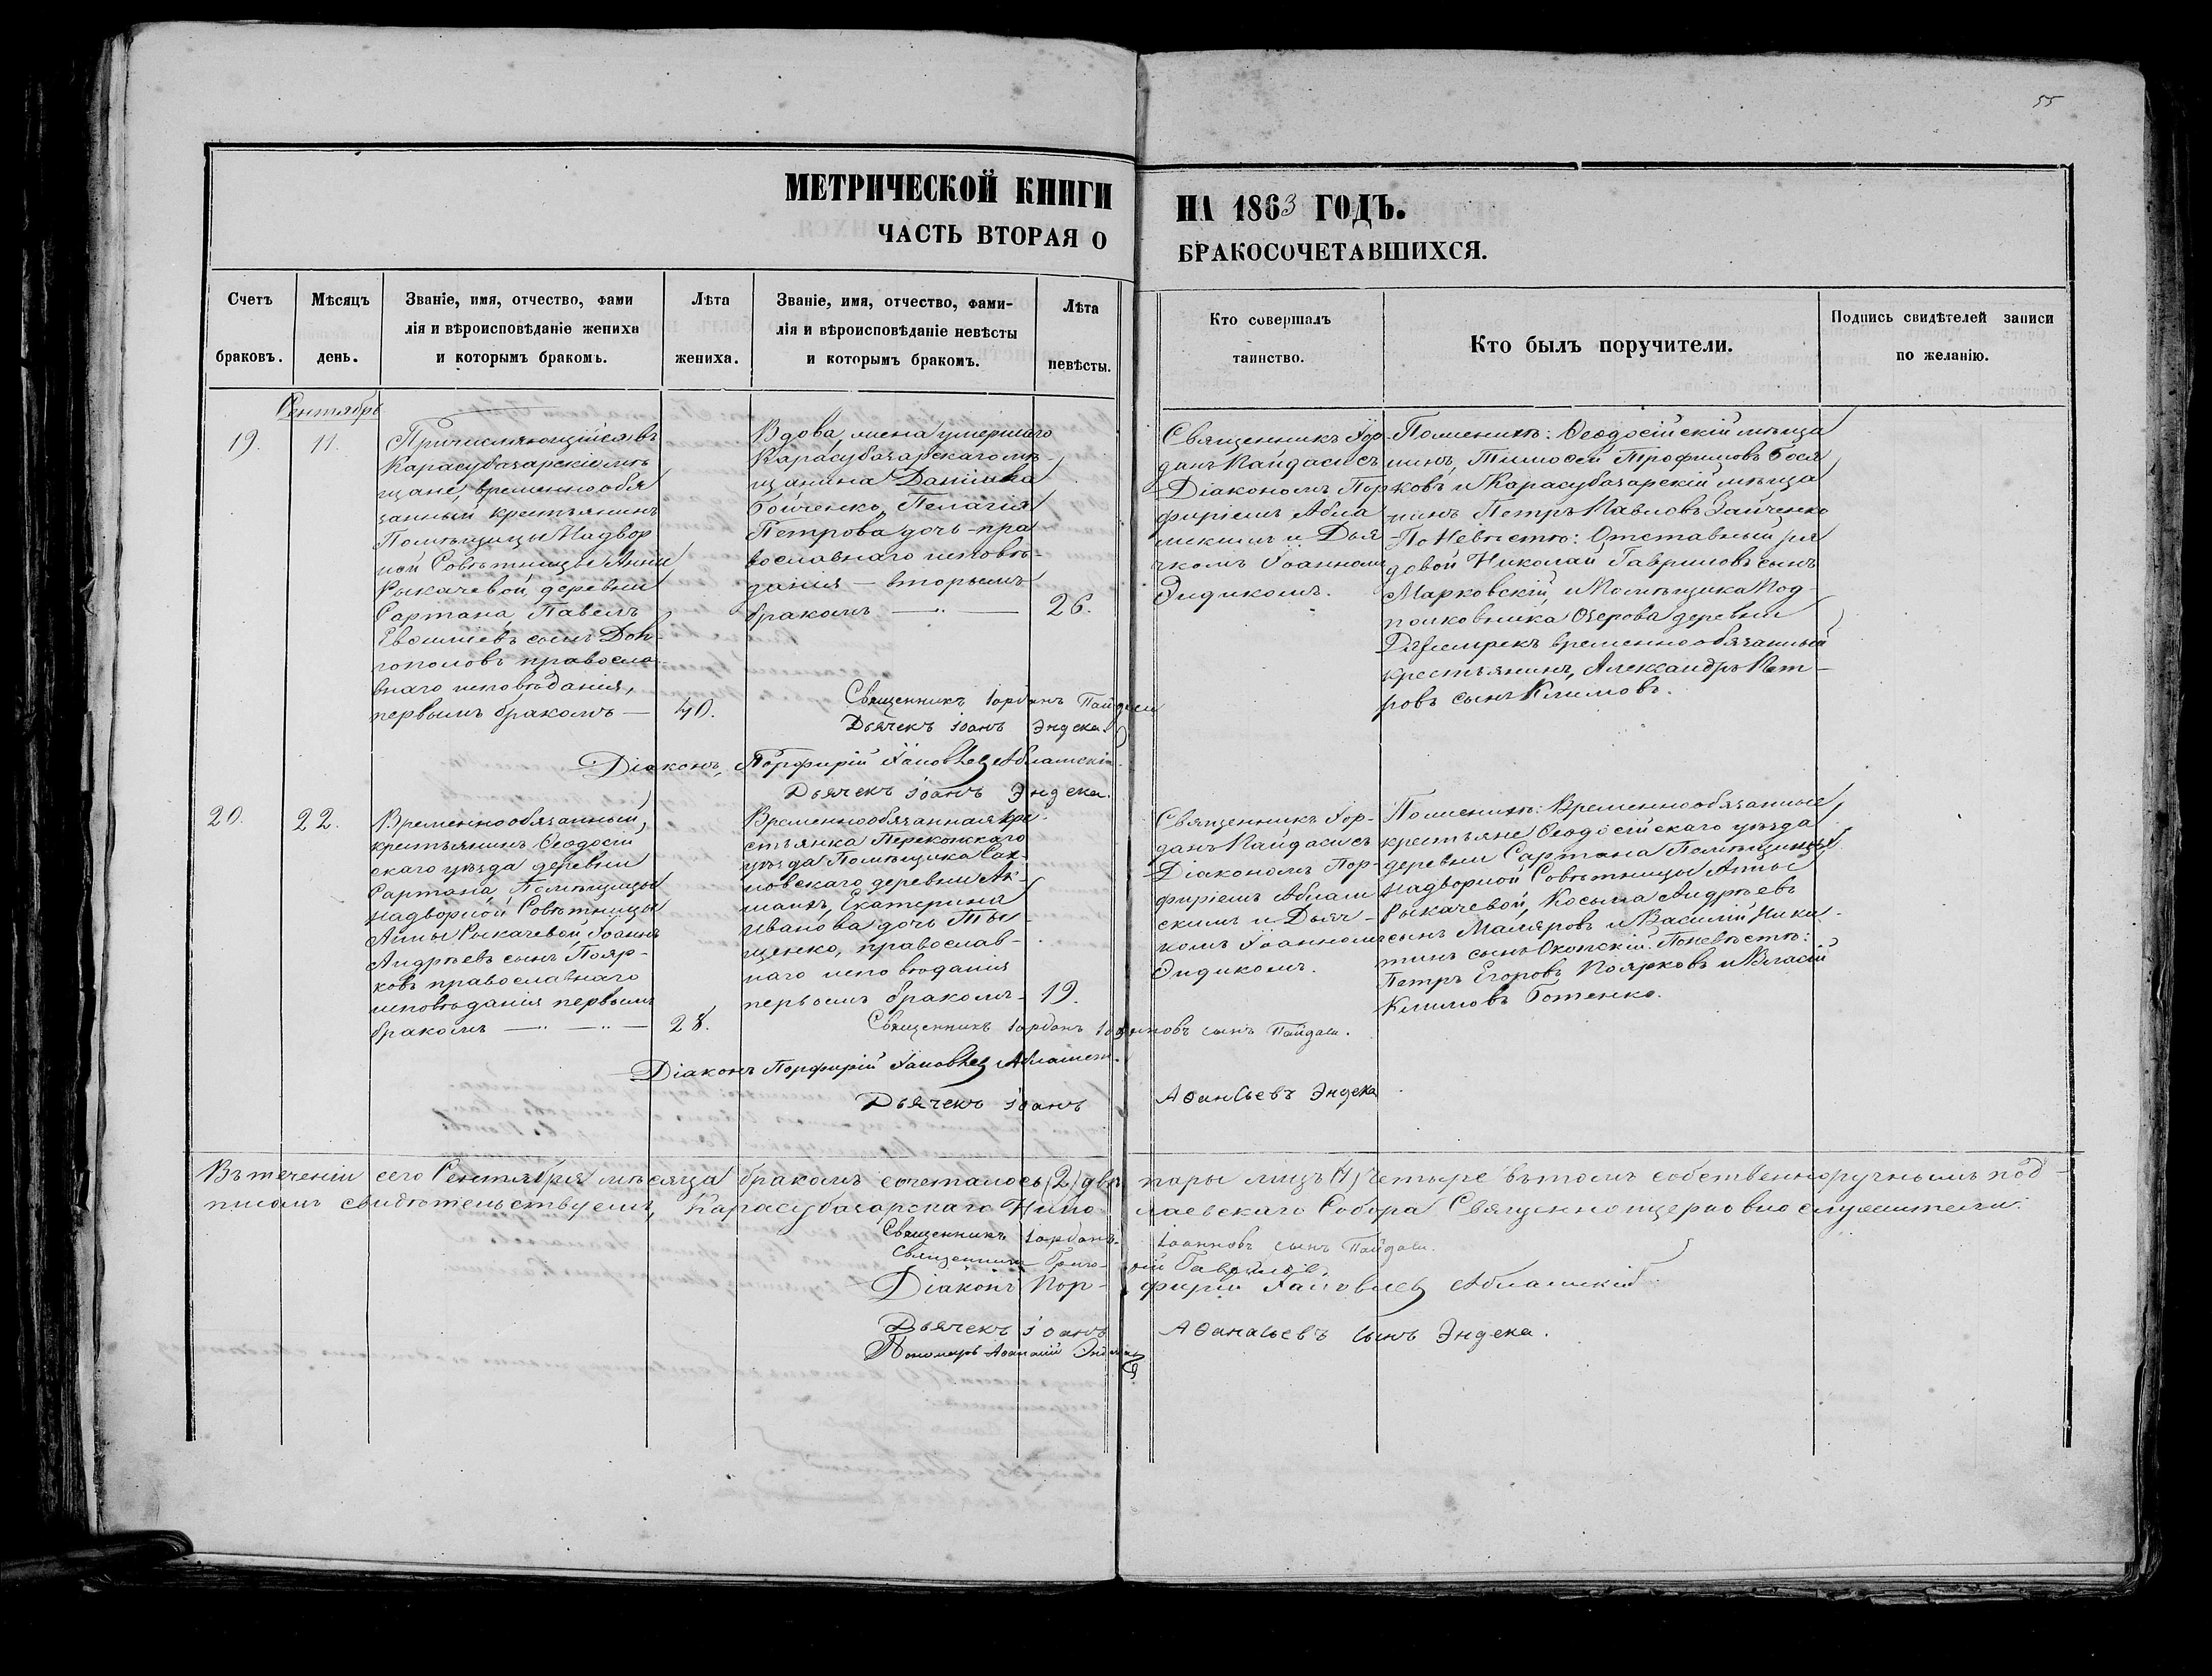 55
МЕТРИЧЕСКОЙ КНИГИ
НА 1863 ГОДЪ.
ЧАСТЬ ВТОРАЯ О
БРАКОСОЧЕТАВШИХСЯ.
Счетъ
браковъ.
Мѣсяцъ
день.
Званіе, имя, отчество, фами
лія и вѣроисповѣданіе жениха
и которымъ бракомъ.
Лѣта
жениха.
Званіе, имя, отчество, фами-
лія и вѣроисповѣданіе невѣсты
и которымъ бракомъ.
Лѣта
невѣсты.
Кто совершалъ
таинство.
Кто былъ поручители.
Подпись свидѣтелей записи
по желанію.
Сентябрь
19.
11.
Причисляющійся въ
Карасубазарскіе мѣ
щане, временнообя
занный крестьянинъ
Помѣщицы Надвор
ной Совѣтницы Анны
Рыкачевой, деревни
Сартана, Павелъ
сынъ Дол-
гополовъ правосла
внаго исповѣданія,
первымъ бракомъ —
40.
Вдова, жена умершаго
Карасубазарскаго мѣ-
щанина Даніила
Бойченко, Пелагія
Петрова дочь - пра
вославнаго исповѣ-
данія — вторымъ
бракомъ —
26.
Священникъ Іор-
данъ Пайдаси съ
Діакономъ Пор
фиріемъ Абла
мскимъ и Дья
чкомъ Іоанномъ
Эндикомъ.
По женихѣ: Ѳеодосійскій мѣща
нинъ, Тимоѳей Трофимовъ Бося
ковъ и Карасубазарскій мѣща
нинъ Петръ Павловъ Зайченко
- По Невѣстѣ: Отставный ря
довой Николай Гавриловъ сынъ
Марковскій, и Помѣщика Под
полковника Озерова деревни
временнообязанный
крестьянинъ, Александръ Пет-
ровъ сынъ Климовъ.
Священникъ Іорданъ Пайдаси
Дьячекъ Іоанъ Эндека.
Діаконъ, Порфирій Абламскій.
Дьячекъ Іоанъ Эндека.
20.
22.
Временнообязанный,
крестьянинъ Ѳеодосій
скаго уѣзда деревни
Сартана, Помѣщицы
Надворной Совѣтницы
Анны Рыкачевой, Іоаннъ
Андрѣевъ сынъ Пояр-
ковъ православнаго
исповѣданія первымъ
бракомъ —
28.
Временнообязанная кре-
стьянка Перекопскаго
уѣзда Помѣщика
деревни Ак-
Екатерина
Иванова дочь Ты-
щенко, православ-
наго исповѣданія
первымъ бракомъ -
19.
Священникъ Іор-
данъ Пайдаси съ
Діакономъ Пор-
фиріемъ Аблам
скимъ и Дьяч-
комъ Іоанномъ
Эндикомъ.
По женихѣ: Временнообязанные
крестьяне Ѳеодосійскаго уѣзда
деревни Сартана Помѣщицы
Надворной Совѣтницы Анны
Рыкачевой, Косьма Андрѣевъ
сынъ Маляровъ и Василій Ники-
тинъ сынъ Оконскій. По невѣстѣ:
Петръ Егоровъ Поярковъ и
Климовъ Ботенко.
Священникъ Іорданъ Іоанновъ сынъ Пайдаси.
Діаконъ Порфирій Абламскій.
Дьячекъ Іоанъ Аѳанасьевъ Эндека
Въ теченіи сего Сентября мѣсяца бракомъ сочеталось (2) двѣ пары лицъ (4) Четыре въ томъ собственноручнымъ под-
писомъ свидѣтельствуемъ, Карасубазарскаго Нико лаевскаго Собора Священноцерковнослужители:
Священникъ Іорданъ Іоанновъ сынъ Пайдаси.
Священникъ Григо- рій
Діаконъ Пор- фирій Абламскій
Дьячекъ Іоанъ Аѳанасьевъ сынъ Эндека.
Пономарь Аѳанасій